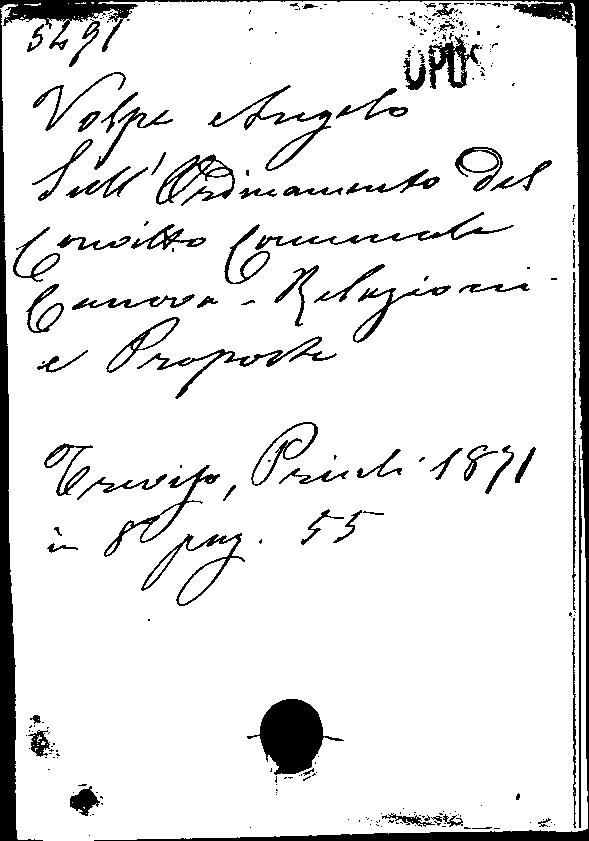 5491
OPUS
Volpe Angelo
Sull' Ordinamento del
Convitto Comunale
Canova - Relazioni
e Proposte
Treviso, Priuli 1871
in 8º pag. 55